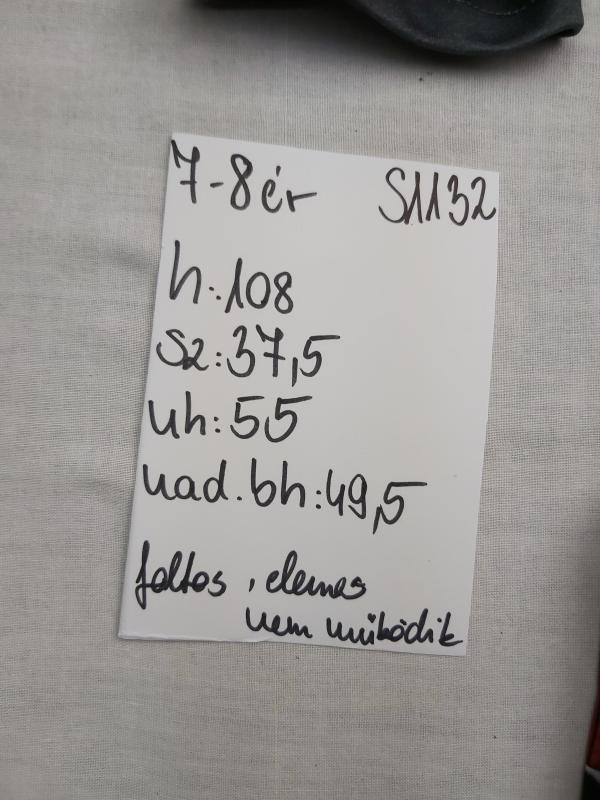 7-8 ér S1132
h: 108
sz: 37,5
uh: 55
nad. bh: 49,5
foltos, elemes
nem működik